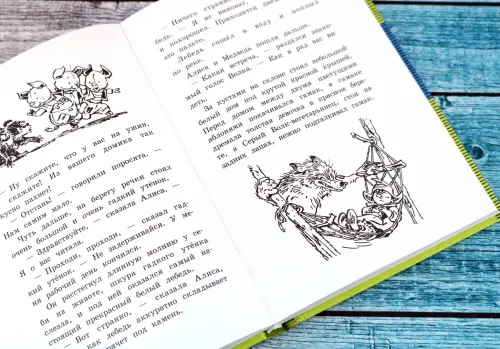 — Ну скажите, что у вас на ужин,
скажите! Из вашего домика так
вкусно пахнет!
— Отстань! — говорили поросята. —
Нам самим мало.
Чуть дальше, на берегу речки стоял
очень большой и очень гадкий утёнок.
— Здравствуйте, — сказала Алиса. —
Я о вас читала.
— Проходи, проходи, — сказал гад-
кий утёнок. — Не задерживайся. У ме-
ня рабочий день кончился.
Он расстегнул длинную молнию у се-
бя на животе, шкура гадкого утёнка
слезла, и под ней оказался самый на-
стоящий белый лебедь.
— Вот странно, — сказала Алиса,
как лебедь аккуратно складывает
прячет под камень.
Ничего
бедь. — Я не виноват,
и похорошел. Приходится
это пальто, сошёл в воду и поплыл
Лебедь
по реке.
Алиса и Медведь пошли дальше.
— Какая встреча, — раздался знако-
мый голос Волка. — Как я рад вас ви-
деть.
За кустами на склоне стоял небольшой
белый дом под крутой красной крышей.
Перед домом между двумя цветущими
яблонями покачивался гамак. В гамаке
дремала толстая девочка в красном бере-
те, а Серый Волк-вегетарианец, стоя на
задних лапах, нежно подталкивал гамак.